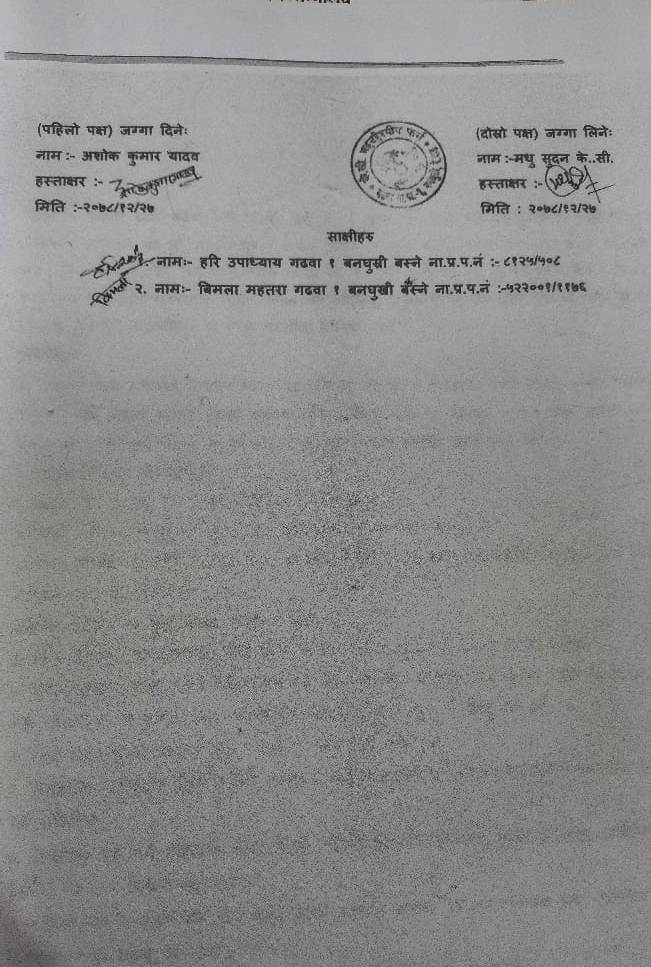 (पहिलो पक्ष) जग्गा दिनेः
नाम :- अशोक कुमार यादव
हस्ताक्षर :-
मिति :-२०७८/१२/२७
(दोस्रो पक्ष) जग्गा लिनेः
नाम :-मधु सुदन के..सी.
हस्ताक्षर :-
मिति : २०७८/१२/२७
साक्षीहरु
१. नामः- हरि उपाध्याय गढवा १ बनघुखी बस्ने ना.प्र.प.नं :- ८१२५/५०८
२. नामः- बिमला महतरा गढवा १ बनघुखी बस्ने ना.प्र.प.नं :-५२२००१/११७६